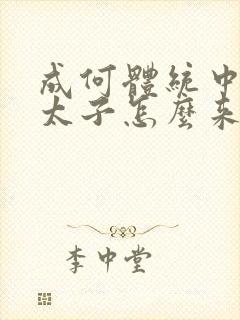 成何體統中
太子怎麼來
李中堂